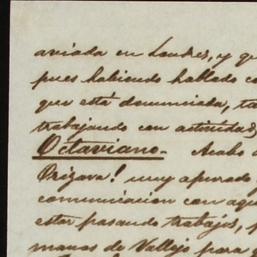 aviada en Londres, y q
pues habiendo hablado co
que está denunciada, ta
trabajando con actividad,
Octaviano. Acabo d
Orizava! muy apurado
comunicacion con aqu
estar pasando trabajos, p
manos de Vallejo para q